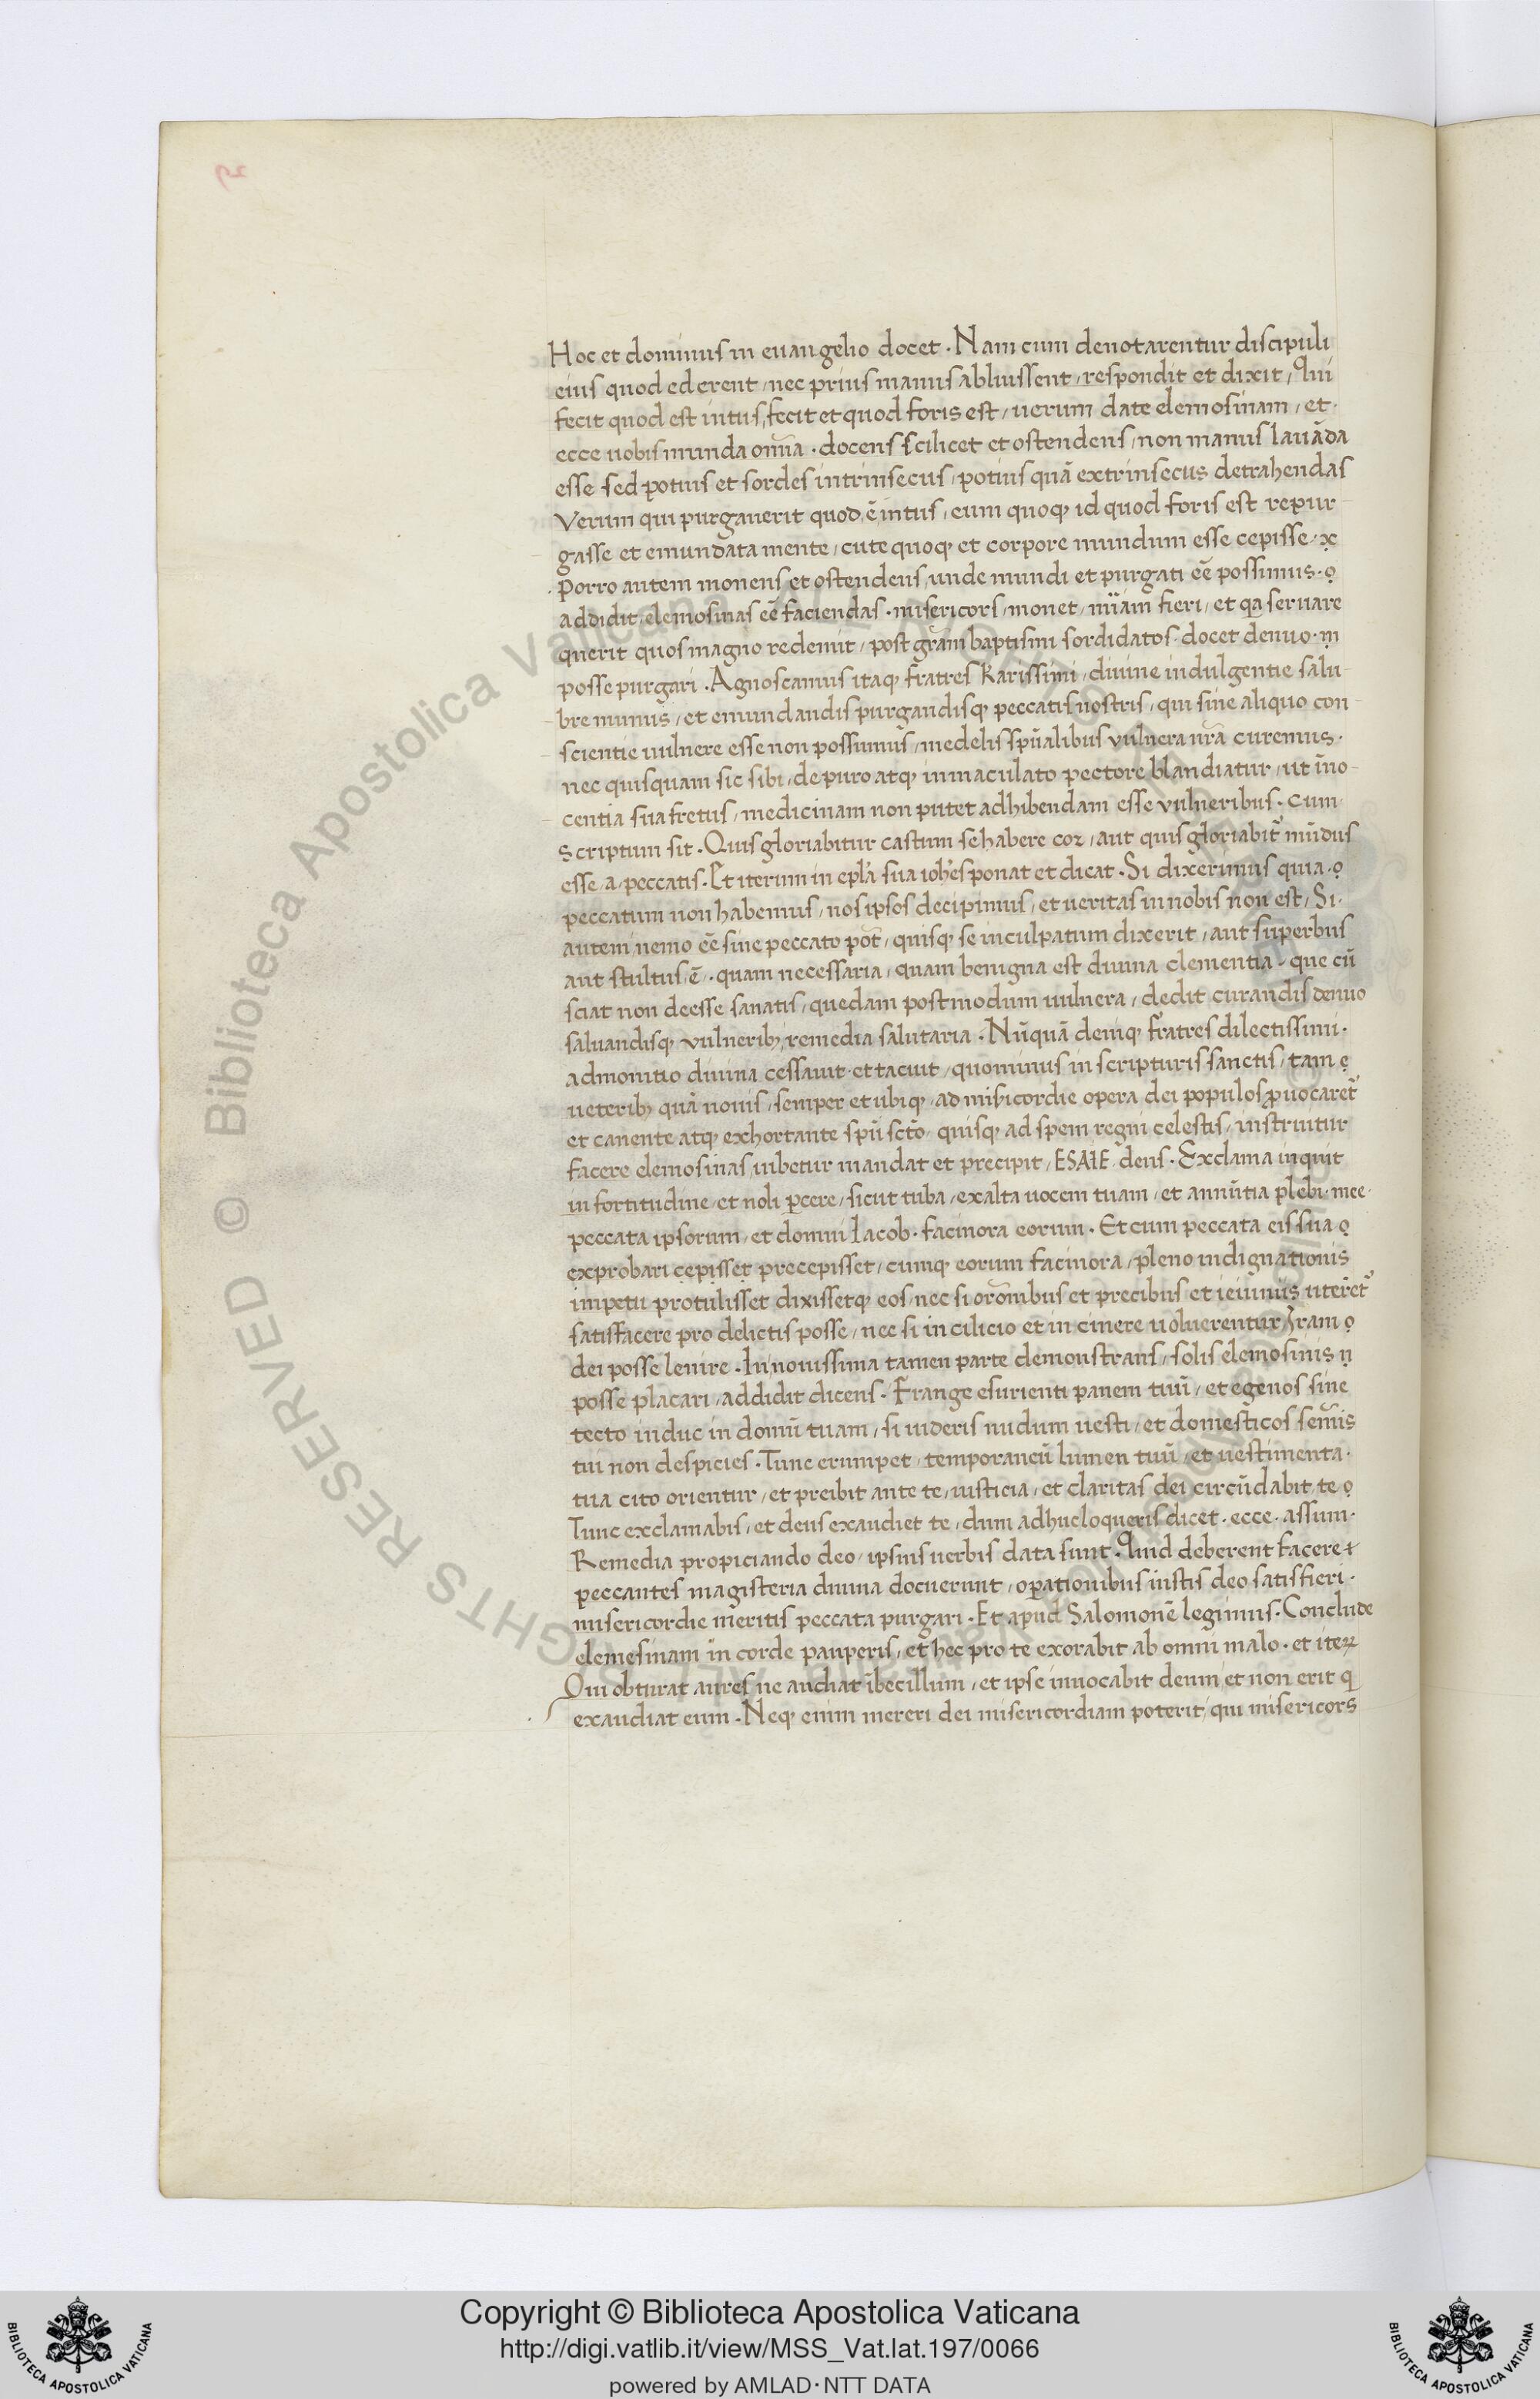 Hoc et dominus in euangelio docet . Nam cum denotarentur discipuli
eius quod ederent / nec prius manus abluissent / respondit et dixit / Qui
fecit quod est intus / fecit et quod foris est / uerum date elemosinam / et .
ecce uobis munda om̄ia . docens scilicet et ostendens / non manus lauāda
esse sed potius et sordes intrinsecus / potius quā extrinsecus detrahendas
Verum qui purgauerit quod ē intus / eum quoqꝫ id quod foris est repur-
gasse et emundata mente / cute quoqꝫ et corpore mundum esse cepisse .
. Porro autem monens et ostendens / unde mundi et purgati eē possimus .
addidit / elemosinas eē faciendas . misericors / monet / mīam fieri / et qa seruare
querit quos magno redemit / post grām baptismi sordidatos . docet denuo .
posse purgari . Agnoscamus itaqꝫ fratres karissimi / diuine indulgentie salu-
bre munus / et emundandis purgandisqꝫ peccatis nostris / qui sine aliquo con-
scientie uulnere esse non possumus / medelis spūalibus vulnera nrā curemus .
nec quisquam sic sibi / de puro atqꝫ inmaculato pectore blandiatur / ut īno-
centia sua fretus / medicinam non putet adhibendam esse vulneribus . cum
scriptum sit . Quis gloriabitur castum se habere cor / aut quis gloriabit̄ mūdus
esse / a / peccatis . Et iterum in epl̄a sua ioh̄es ponat et dicat . Si dixerimus quia .
peccatum non habemus / nos ipsos decipimus / et ueritas in nobis non est / Si .
autem nemo eē sine peccato pōt / quisqꝫ se inculpatum dixerit / aut superbus
aut stultus ē . quam necessaria / quam benigna est diuina clementia / que cū
sciat non deesse sanatis / quedam postmodum uulnera / dedit curandis denuo
saluandisqꝫ vulneribꝫ / remedia salutaria . Nūquā deniqꝫ fratres dilectissimi .
admonitio diuina cessauit . et tacuit / quominus in scripturis sanctis / tam
ueteribꝫ quā nouis / semper et ubiqꝫ / ad mīsicordie opera dei populos ꝓuocaret̄
et canente atqꝫ exhortante spū scto / quisqꝫ ad spem regni celestis / instruitur
facere elemosinas iubetur mandat et precipit / ESAIE deus . Exclama inquit
in fortitudine / et noli ꝑcere / sicut tuba / exalta uocem tuam / et annūtia plebi . mee .
peccata ipsorum / et domui Iacob . facinora eorum . Et cum peccata eis sua
exprobari cepisset precepisset / cumqꝫ eorum facinora / pleno indignationis
impetu protulisset dixissetqꝫ eos / nec si orōnibus et precibus et ieiuniis uteret̄
satisfacere pro delictis posse / nec si in cilicio et in cinere uoluerentur Iram
dei posse lenire . In nouissima tamen parte demonstrans / solis elemosinis
posse placari / addidit dicens . Frange esurienti panem tuū / et egenos sine
tecto induc in domū tuam / si uideris nudum uesti / et domesticos semīs
tui non despicies . Tunc erumpet / temporaneū lumen tuū / et uestimenta .
tua cito orientur / et preibit ante te / iusticia / et claritas dei circūdabit te
Tunc exclamabis / et deus exaudiet te / dum adhuc loqueris dicet . ecce . assum .
Remedia propiciando deo / ipsius uerbis data sunt . Quid deberent facere
peccantes magisteria diuina docuerunt / oꝑationibus iustis deo satisfieri .
misericordie meritis peccata purgari . Et apud Salomonē legimus . Conclude
elemesinam in corde pauperis / et hec pro te exorabit ab omni malo . et iteꝝ
Qui obturat aures ne audiat ībecillum / et ipse inuocabit deum / et non erit q
exaudiat eum . Neqꝫ enim mereri dei misericordiam poterit / qui misericors
Copyright © Biblioteca Apostolica Vaticana
http://digi.vatlib.it/view/MSS_Vat.lat.197/0066
powered by AMLAD·NTT DATA
BIBLIOTECA APOSTOLICA VATICANA
BIBLIOTECA APOSTOLICA VATICANA